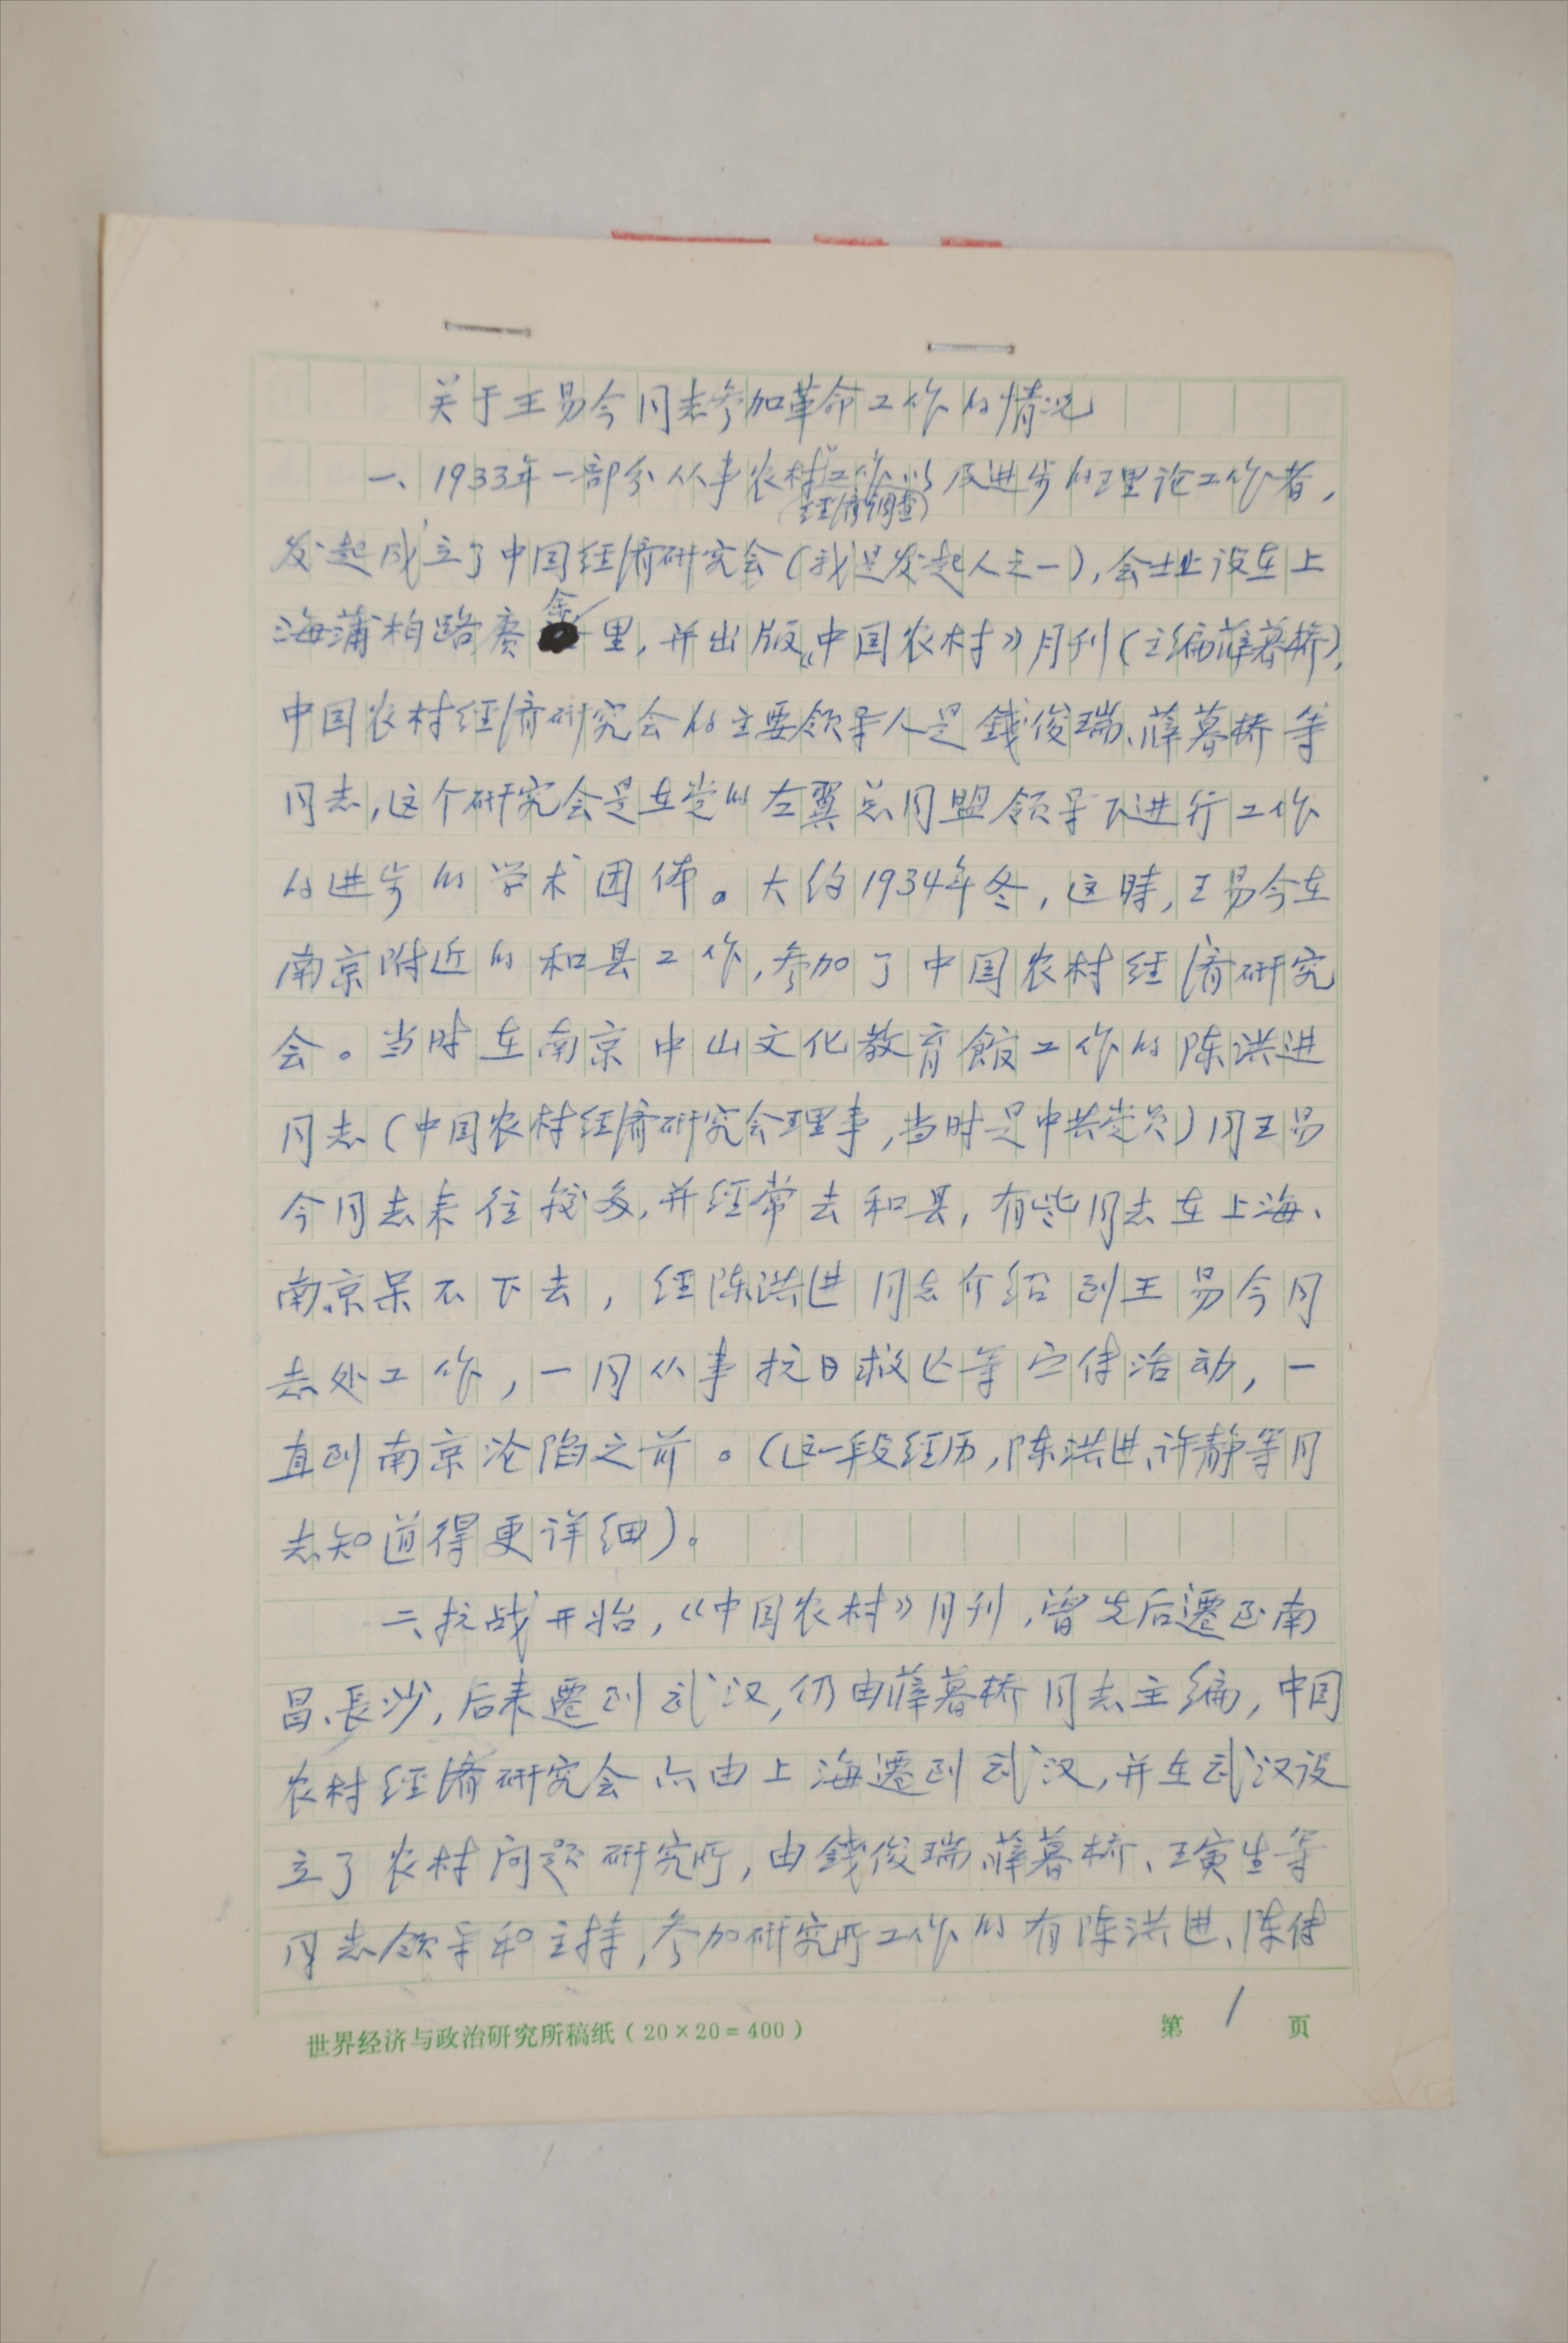 关于王易今同志参加革命工作的情况
一、1933年一部分从事农村工作以及进步的理论工作者,
(经济调查)
发起成立了中国经济研究会(我是发起人之一),会址设在上
海蒲柏路赓余里,并出版《中国农村》月刊(主编薛暮桥),
中国农村经济研究会的主要领导人是錢俊瑞、薛暮桥等
同志,这个研究会是在党的左翼总同盟领导下进行工作
的进步的学术团体。大约1934年冬,这時,王易今在
南京附近的和县工作,参加了中国农村经济研究
会。当时在南京中山文化教育館工作的陈洪进
同志(中国农村经济研究会理事,当时是中共党员)同王易
今同志来往较多,并经常去和县,有些同志在上海、
南京呆不下去,经陈洪进同志介绍到王易今同
志处工作,一同从事抗日救亡等宣传活动,一
直到南京沦陷之前。(这一段经历,陈洪进、许静等同
志知道得更详细)。
二、抗战开始,《中国农村》月刊,曾先后遷到南
昌、長沙,后来遷到武汉,仍由薛暮桥同志主编,中国
农村经济研究会亦由上海遷到武汉,并在武汉设
立了农村问题研究所,由錢俊瑞、薛暮桥、王寅生等
同志领导和主持,参加研究所工作的有陈洪进、陈传
世界经济与政治研究所稿纸(20×20=400)
第 1 页